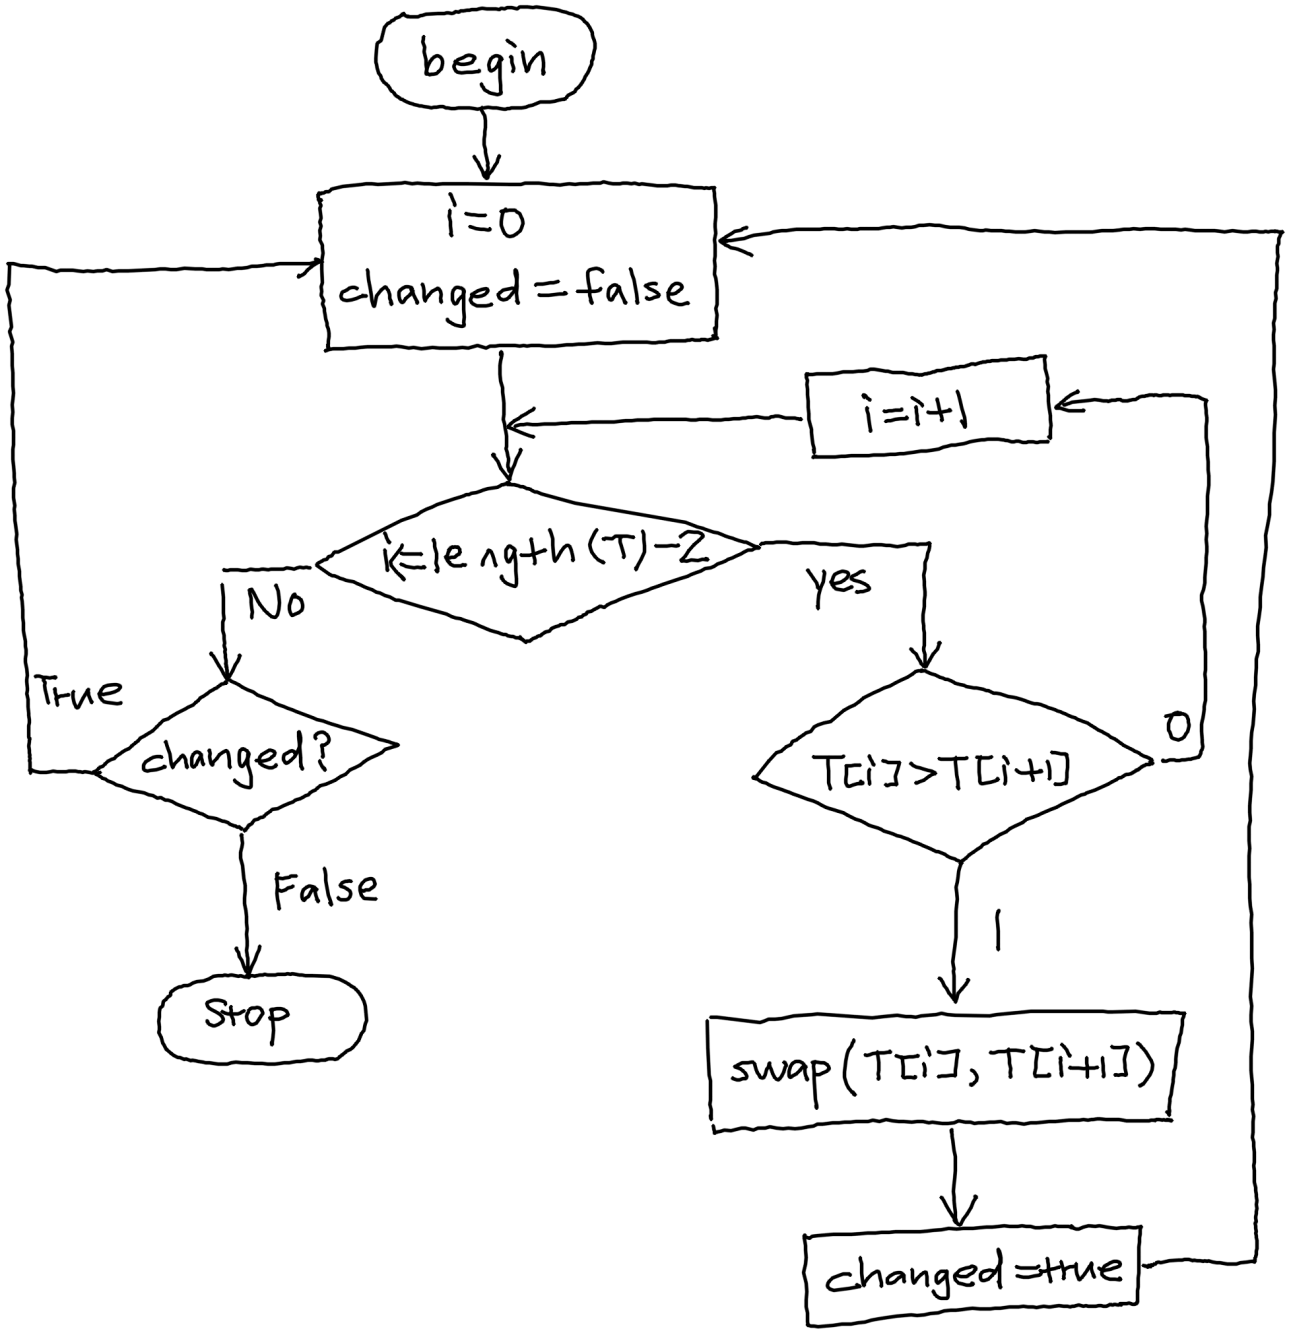 begin
i=0
changed=false
i=i+1
i<=length(T)-2
No
yes
True
changed?
T[i]>T[i+1]
0
False
1
stop
swap(T[i], T[i+1])
changed=true